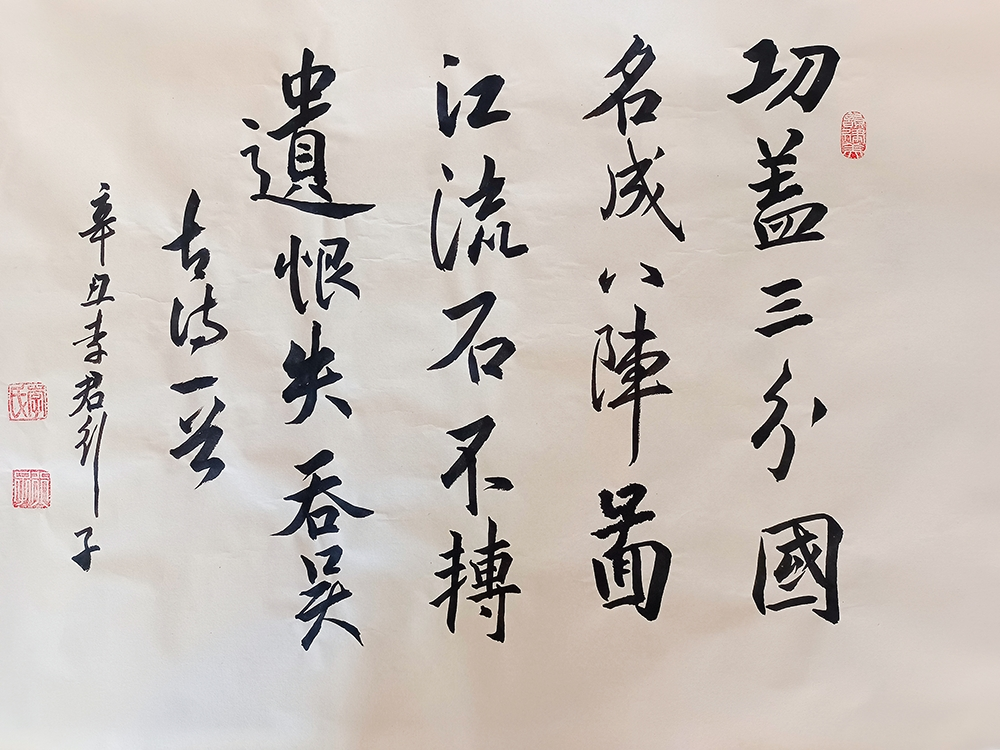 功盖三分國
名成八陣圖
江流石不轉
遺恨失吞吴
古诗一首
辛丑李君子